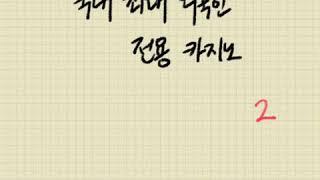 국내 최대 외국인
전용 카지노
2